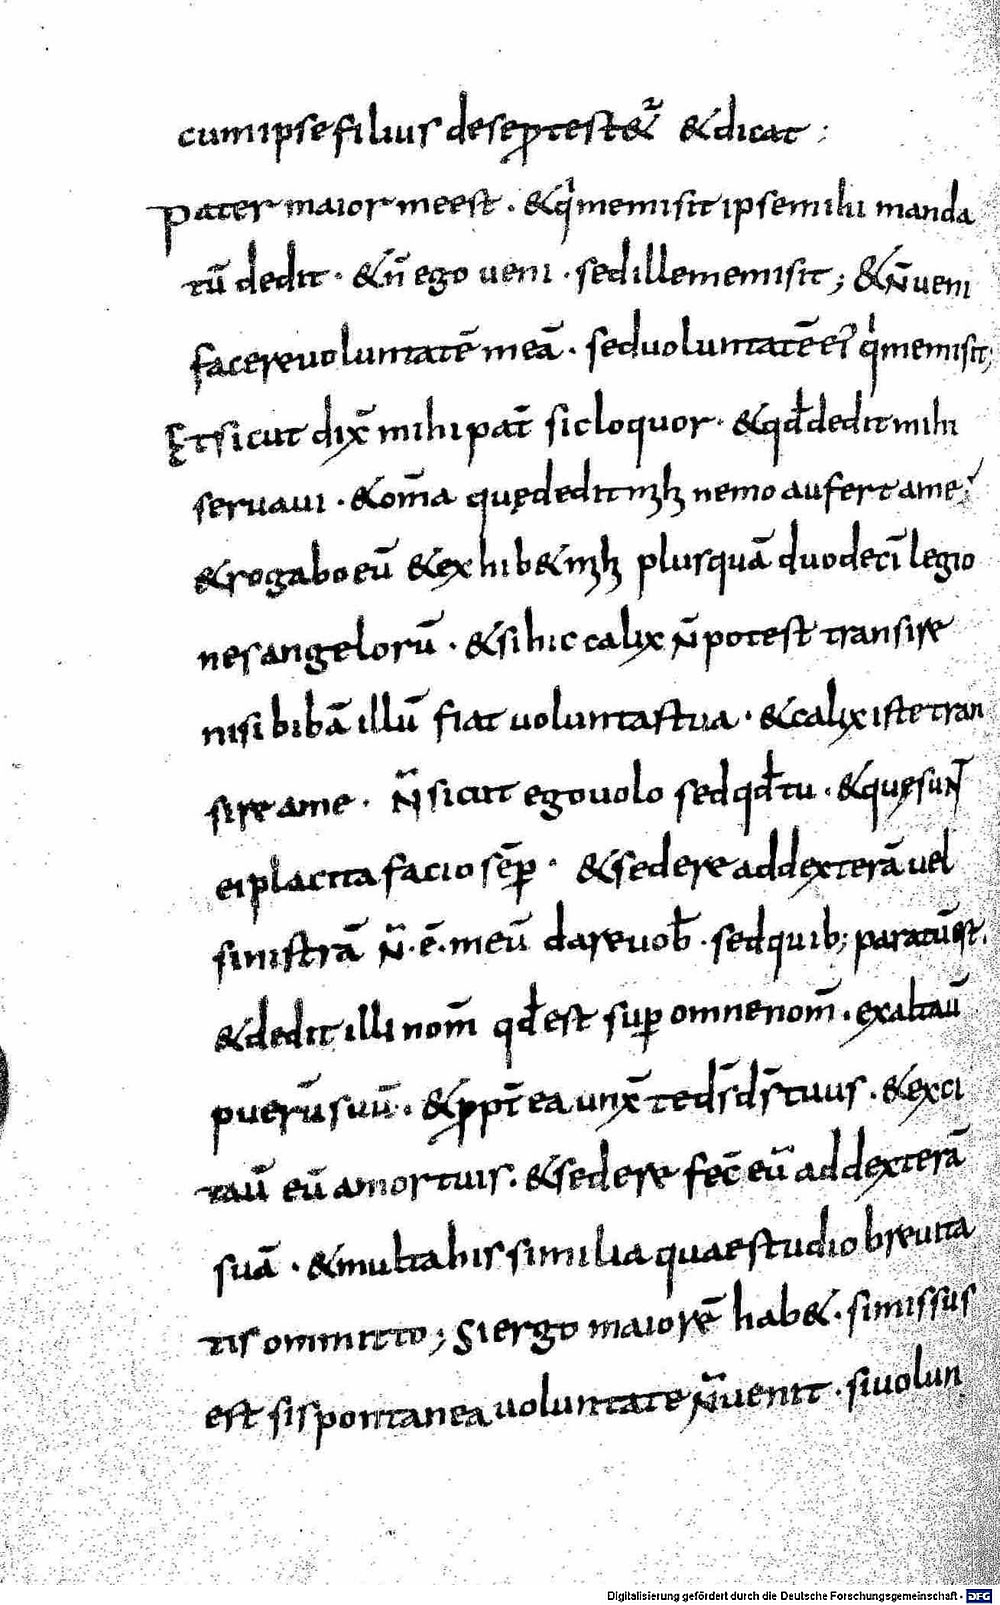 cum ipse filius de se ꝓtest&ur̃ & dicat ;
Pater maior me est · & qͥ me misit ipse mihi manda
tū dedit · & n̄ ego ueni · sed ille me misit ; & N̄ ueni
facere uoluntatē meā · sed uoluntatē eiꝰ qͥ me misit ;
Et sicut dix̄ mihi pat̄ sic loquor · & qđ dedit mihi
seruaui · & om̄a quę dedit mꝫh nemo aufert a me ;
& rogabo eū & exhib& mꝫh plus quā duodecī legio
nes angelorū · & si hic calix N̄ potest transire
nisi bibā illū fiat uoluntas tua · & calix iste tran
sire a me · N̄ sicut ego uolo sed qđ tu · & quę suNT
ei placita facio sēꝑ · & sedere ad dexterā uel
sinistrā N̄ · ē · meū dare uob̄ · sed quib; paratū est ·
& dedit illi nom̄ qđ est suꝑ omne nom̄ · exaltaū
puerū suū · & ꝓpt̄ea unx̄ te ds̄ ds̄ tuus · & exci
taū eū a mortuis · & sedere fec̄ eū ad dexterā
suā · & multa his similia quae studio breuita
tis ommitto ; Si ergo maiorē hab& · si missus
est si spontanea uoluntate N̄ uenit · si uolun
Digitalisierung gefördert durch die Deutsche Forschungsgemeinschaft - DFG